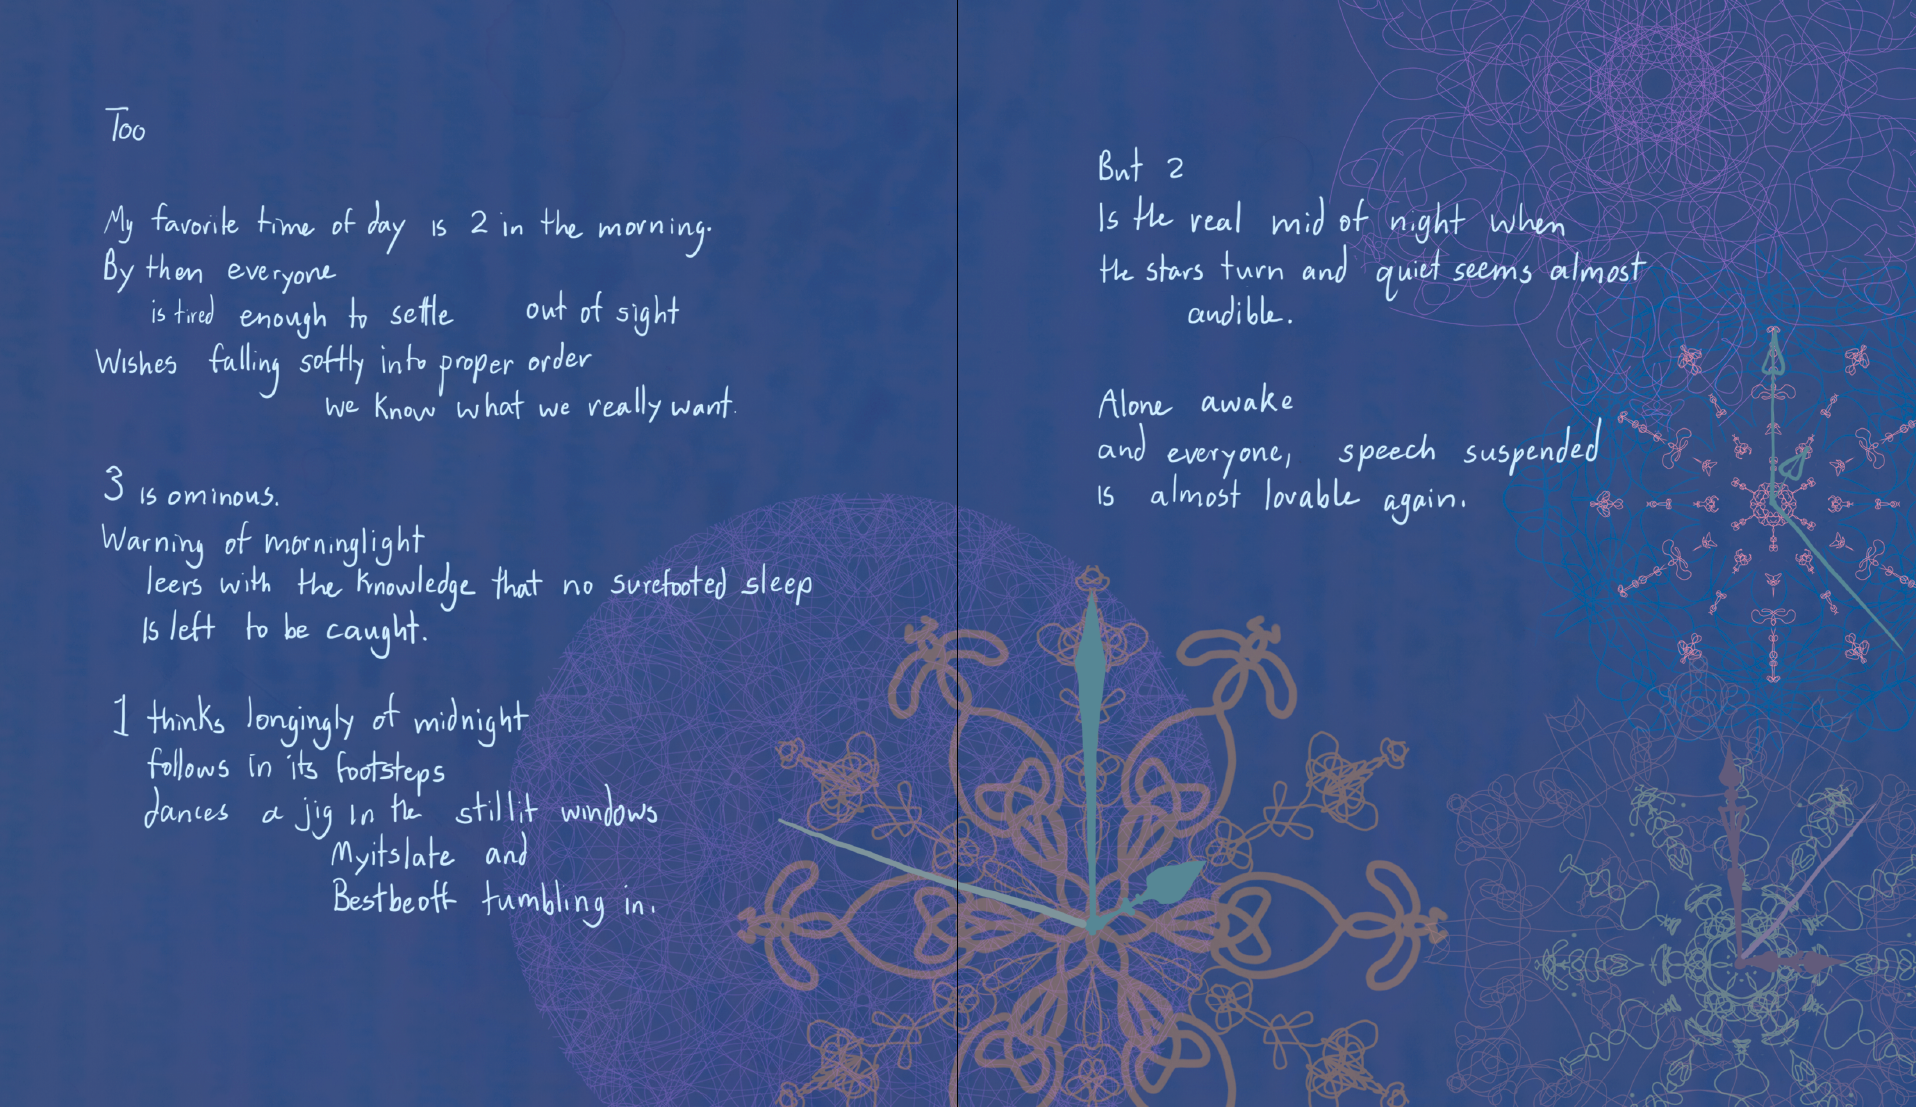 Too
My favorite time of day is 2 in the morning.
By then everyone
is tired enough to settle out of sight
Wishes falling softly into proper order
we know what we really want.
3 is ominous.
Warning of morninglight
leers with the knowledge that no surefooted sleep
Is left to be caught.
1 thinks longingly of midnight
follows in its footsteps
dances a jig in the stillit windows
Myitslate and
Bestbeoff tumbling in.
But 2
Is the real mid of night when
the stars turn and quiet seems almost
audible.
Alone awake
and everyone, speech suspended
is almost lovable again.